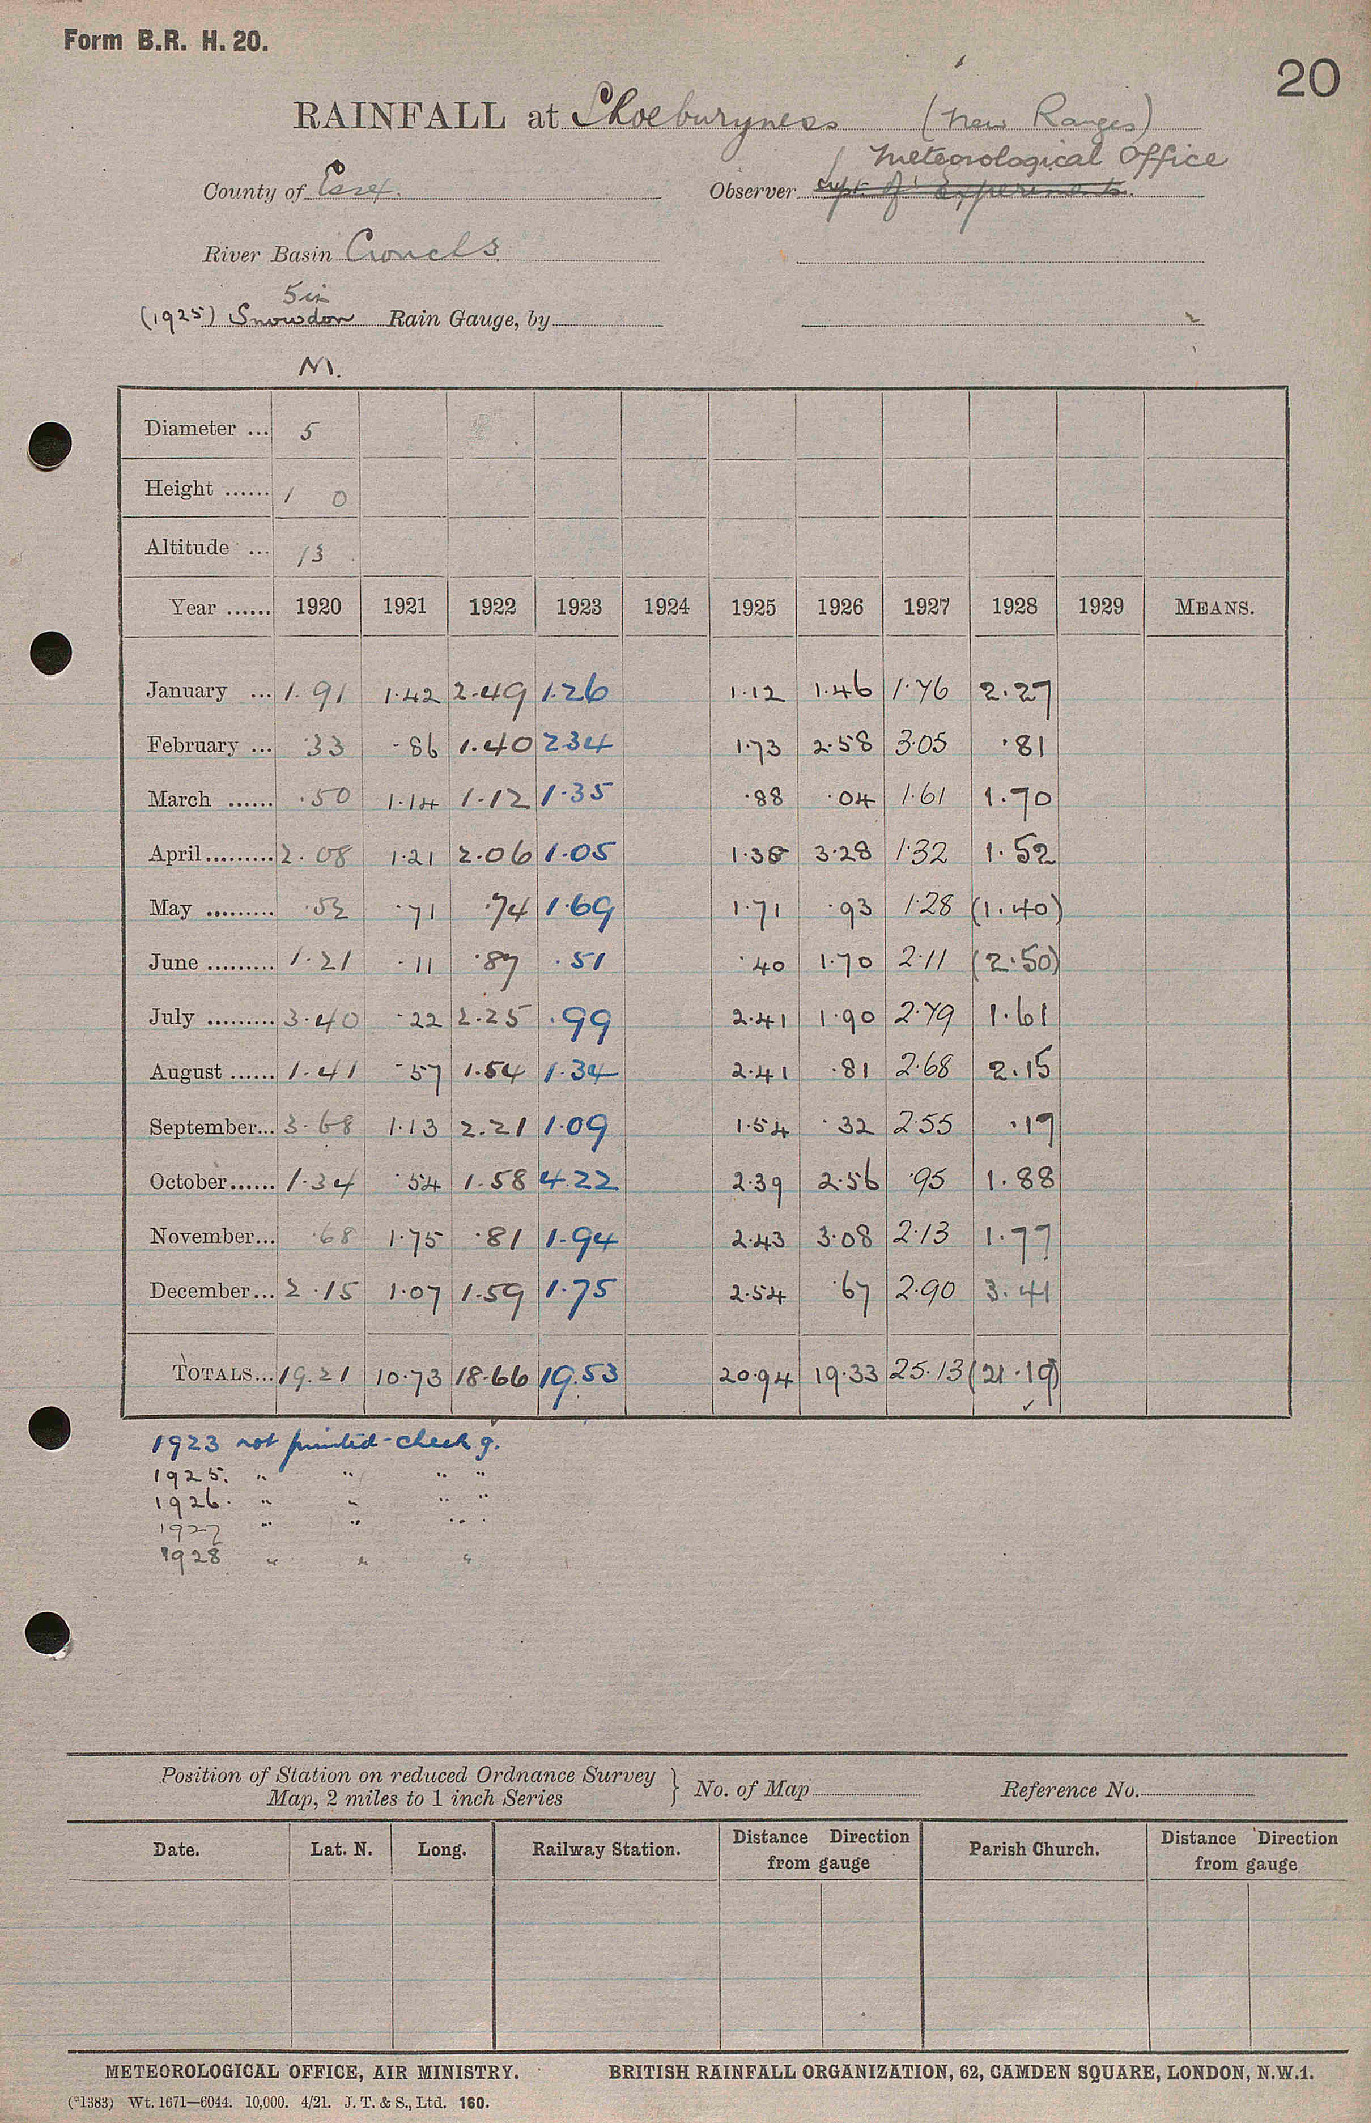 Form B.R. H. 20.
20
RAINFALL at Shoeburyness (New Ranges)
Meteorological Office
County of Essex. Observer Supt. of Experiments.
River Basin Crouch S
5 in
(1925) Snowdon Rain Gauge, by
M.
Diameter ... 5
Height ...... 1 0
Altitude ... 13
Year ...... 1920 1921 1922 1923 1924 1925 1926 1927 1928 1929 MEANS.
January ... 1.91 1.42 2.49 1.26 1.12 1.46 1.76 2.27
February ... .33 .86 1.40 2.34 1.73 2.58 3.05 .81
March ...... .50 1.14 1.12 1.35 .88 .04 1.61 1.70
April ......... 2.08 1.21 2.06 1.05 1.38 3.28 1.32 1.52
May ......... .52 .71 .74 1.69 1.71 .93 1.28 (1.40)
June ......... 1.21 .11 .87 .51 .40 1.70 2.11 (2.50)
July ......... 3.40 .22 2.25 .99 2.41 1.90 2.79 1.61
August ...... 1.41 .57 1.54 1.34 2.41 .81 2.68 2.15
September... 3.68 1.13 2.21 1.09 1.54 .32 2.55 .19
October...... 1.34 .54 1.58 4.22 2.39 2.56 .95 1.88
November... .68 1.75 .81 1.94 2.43 3.08 2.13 1.77
December... 2.15 1.07 1.59 1.75 2.54 .67 2.90 3.41
TOTALS... 19.21 10.73 18.66 19.53 20.94 19.33 25.13 (21.19)
1923 not printed - check g.
1925. " " " "
1926. " " " "
1927 " " " "
1928 " " "
Position of Station on reduced Ordnance Survey
Map, 2 miles to 1 inch Series } No. of Map Reference No.
Date. Lat. N. Long. Railway Station. Distance Direction from gauge Parish Church. Distance Direction from gauge
METEOROLOGICAL OFFICE, AIR MINISTRY. BRITISH RAINFALL ORGANIZATION, 62, CAMDEN SQUARE, LONDON, N.W.1.
(*1383) Wt. 1671—6044. 10,000. 4/21. J. T. & S., Ltd. 160.